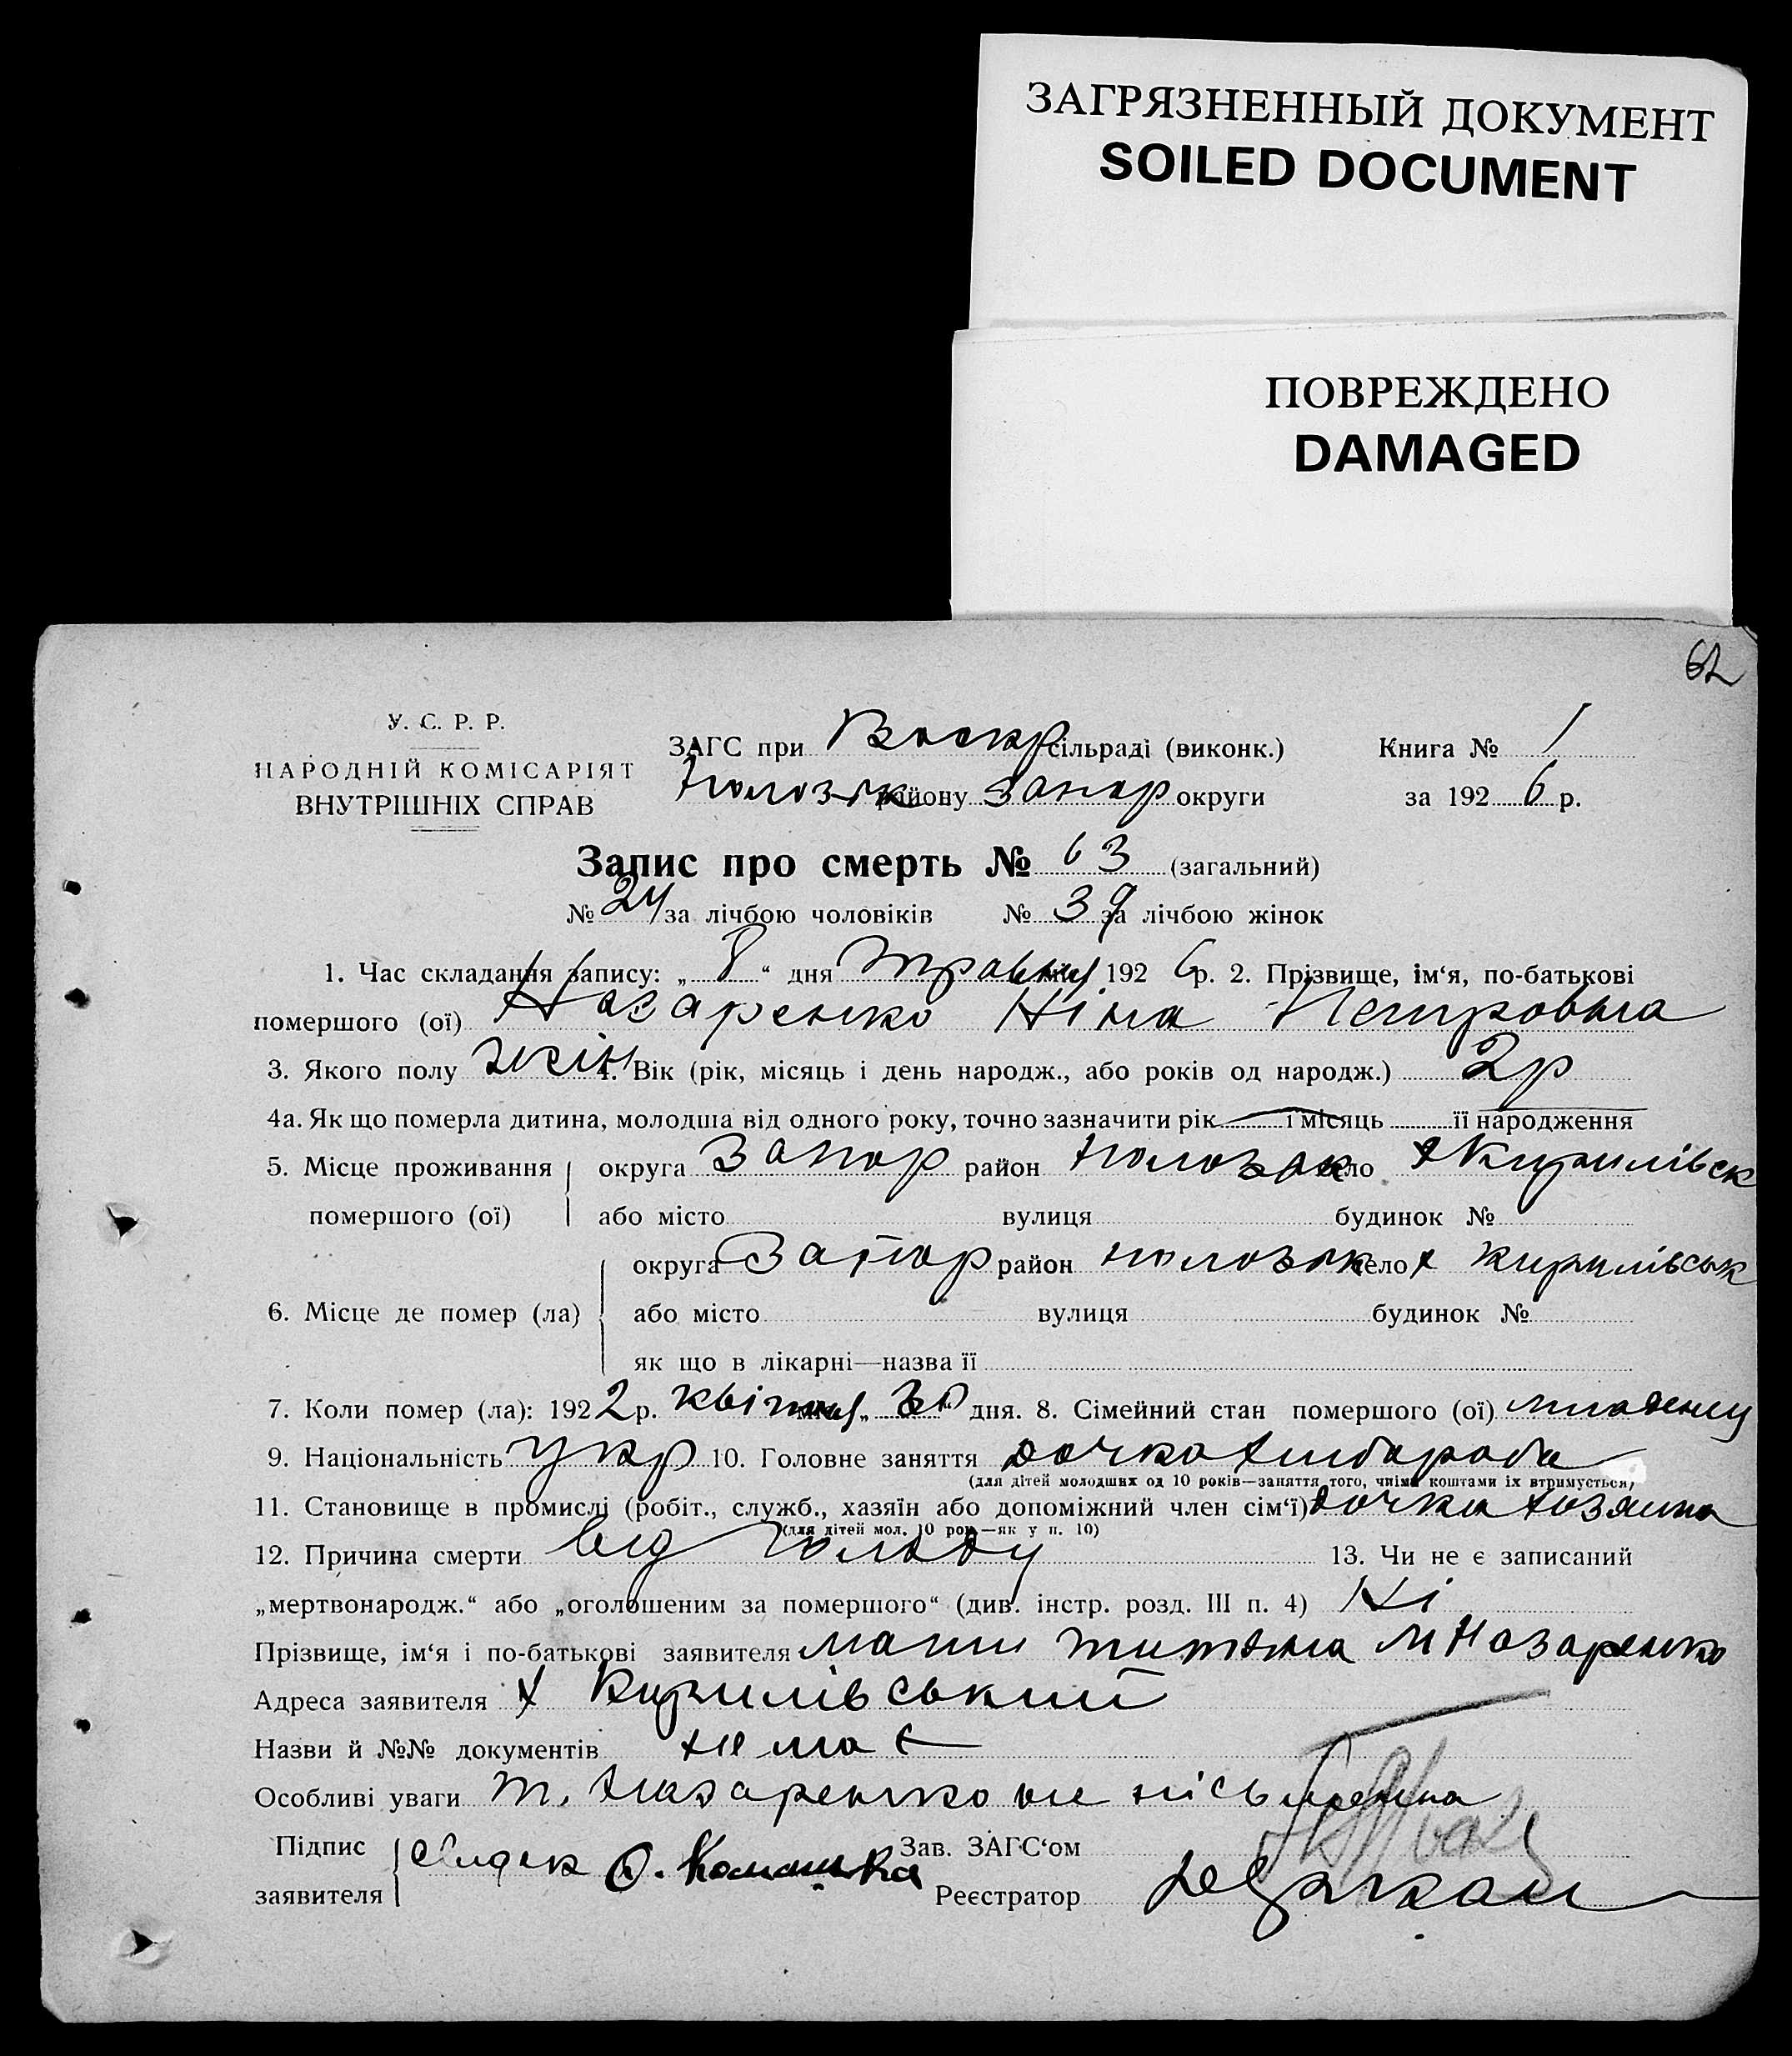 ЗАГРЯЗНЕННЫЙ ДОКУМЕНТ
SOILED DOCUMENT
ПОВРЕЖДЕНО
DAMAGED
62
У. С. Р. Р.
НАРОДНІЙ КОМІСАРІЯТ
ВНУТРІШНІХ СПРАВ
ЗАГС при Воскр сільраді (виконк.) Книга № 1
Пологівськ району Запор округи за 192 6 р.
Запис про смерть № 63 (загальний)
№ 24 за лічбою чоловіків № 39 за лічбою жінок
1. Час складання запису: „ 8 “ дня травня 192 6 р. 2. Прізвище, ім‘я, по-батькові
помершого (ої) Назаренко Ніна Петровна
3. Якого полу жін 4. Вік (рік, місяць і день народж., або років од народж.) 2 р
4а. Як що померла дитина, молодша від одного року, точно зазначити рік — і місяць її народження
5. Місце проживання округа Запор район село х Кирилівськ
помершого (ої) або місто вулиця будинок №
округа Запор район село х Кирилівськ
6. Місце де помер (ла) або місто вулиця будинок №
як що в лікарні—назва її
7. Коли помер (ла): 192 2 р. квітня „ 30 “ дня. 8. Сімейний стан помершого (ої)
9. Національність укр 10. Головне заняття дочка хлібороба
(для дітей молодших од 10 років—заняття того, чиїми коштами їх втримується)
11. Становище в промислі (робіт., служб., хазяїн або допоміжний член сім‘ї) дочка хозяина
(для дітей мол. 10 рок.—як у п. 10)
12. Причина смерти від голоду 13. Чи не є записаний
„мертвонародж.“ або „оголошеним за помершого“ (див. інстр. розд. III п. 4) Ні
Прізвище, ім‘я і по-батькові заявителя мати М Назаренко
Адреса заявителя х Кирилівський
Назви й №№ документів немає
Особливі уваги т. Назаренко не письменна
Підпис Зав. ЗАГС‘ом
заявителя свідок О. Реєстратор